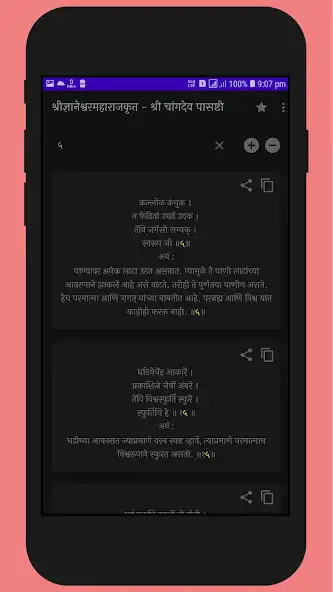 100% 9:07 pm
श्रीज्ञानेश्वरमहाराजकृत - श्री चांगदेव पासष्टी
५
कल्लोळ कंचुक ।
न फेडितां उघडें उदक ।
तेंवि जगेंसी सम्यक् ।
स्वरूप जो ॥५॥
अर्थ :
पाण्यावर अनेक लाटा उठत असतात. त्यामुळे ते पाणी लाटांच्या
आवरणाने झाकले आहे असे वाटते. तरीही ते पूर्णतया पाणीच असते.
हेच परमात्मा आणि जगत् यांच्या बाबतीत आहे. परब्रह्म आणि विश्व यांत
काहीही फरक नाही. ॥५॥
घडियेचेंह आकारें ।
प्रकाशिजे जेवीं अंबरें ।
तेंवि विश्वस्फुर्ति स्फुरें ।
स्फुर्तिचि हे ॥ १५ ॥
अर्थ :
घडीच्या आकारात ज्याप्रमाणे वस्त्र स्पष्ट व्हावें, त्याप्रमाणे परमात्माच
विश्वरुपाने स्फुरत असतो. ॥१५॥